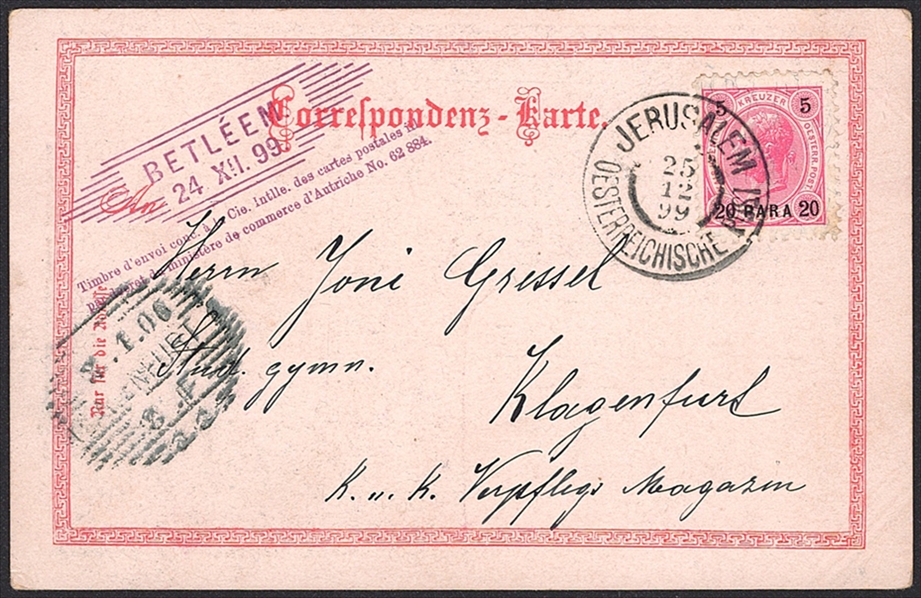 Correspondenz-Karte.
BETLÉEM
24 XII. 99
An
Timbre d'envoi conc. à la Cie. Intlle. des cartes postales
du ministère de commerce d'Autriche No. 62 884.
5 KREUZER 5
OESTERR. POST
20 PARA 20
JERUSALEM
25
12
99
OESTERREICHISCHE
Herrn Joni Gressel
Stud. gymn.
Klagenfurt
K. u. K. Verpflegs Magazin
Nur für die Adresse